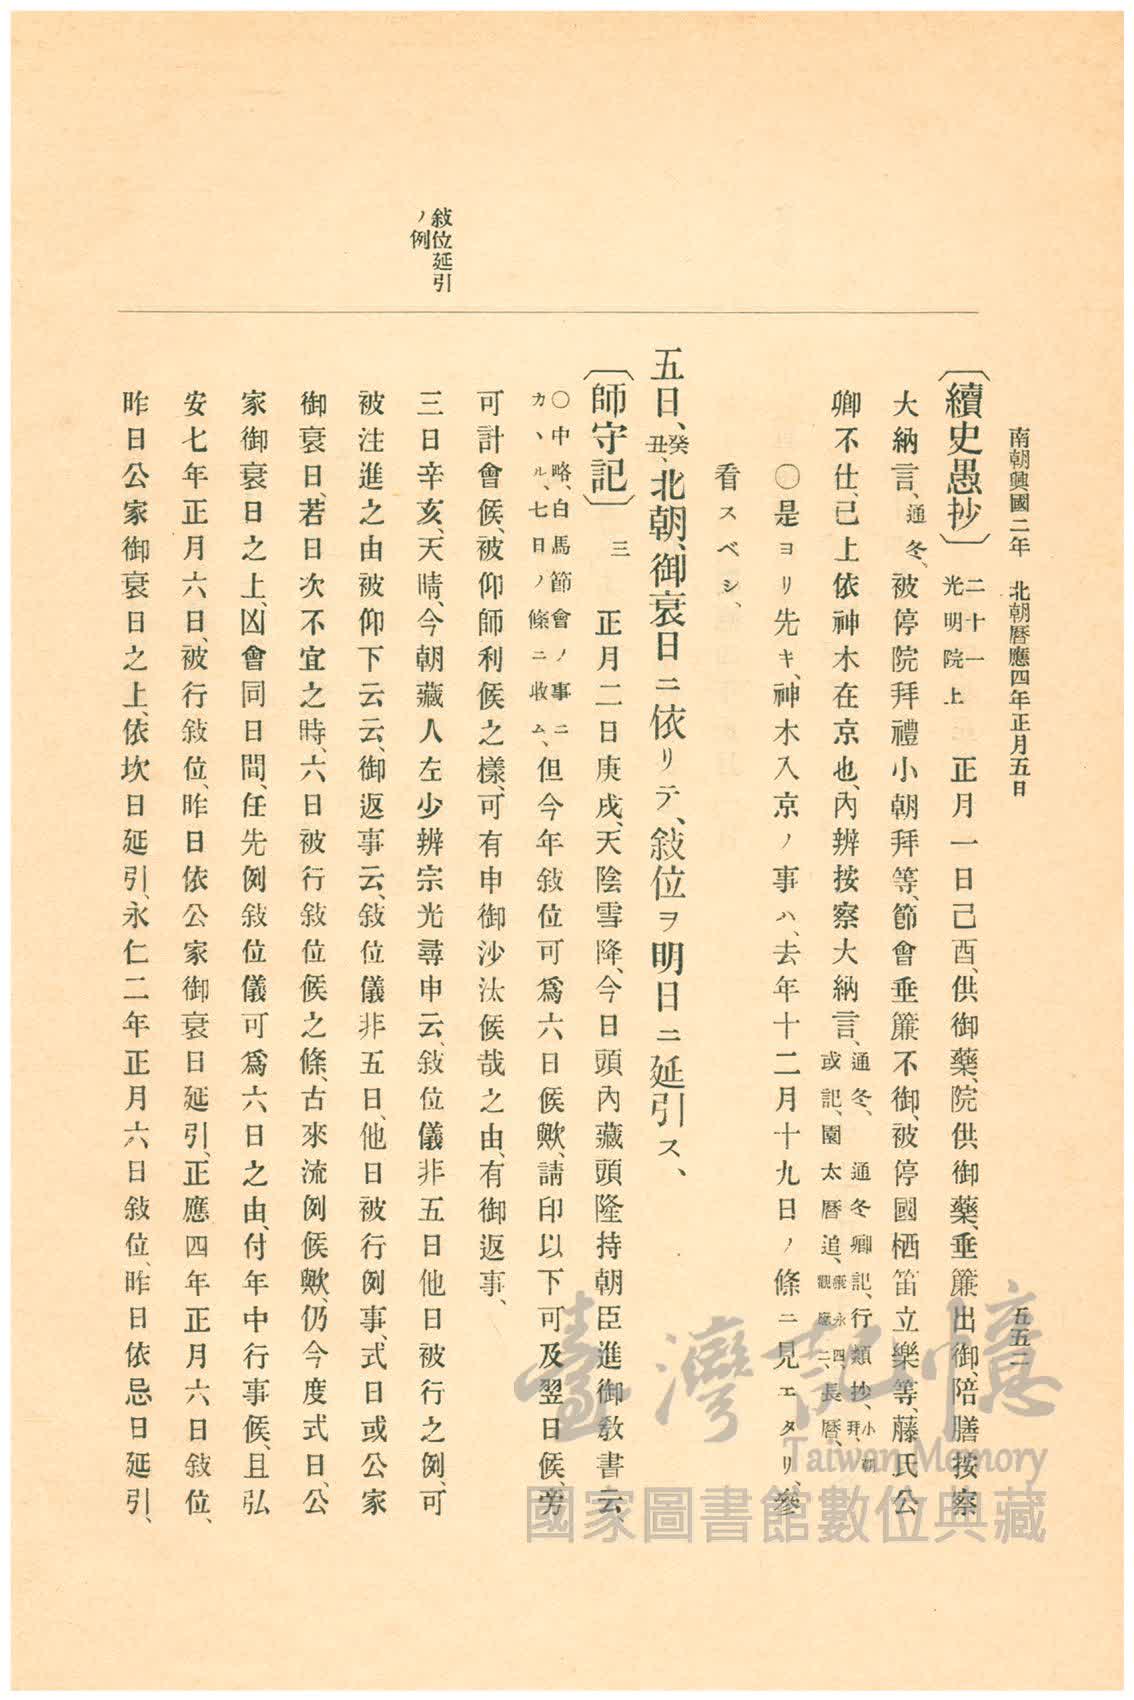 南朝興國二年　北朝曆應四年正月五日　五五二
〔續史愚抄〕二十一光明院上　正月一日己酉、供御藥、院供御藥、垂簾出御、陪膳按察
大納言、通冬、被停院拜禮小朝拜等、節會垂簾不御、被停國栖笛立樂等、藤氏公
卿不仕、已上依神木在京也、內辨按察大納言、通冬、通冬卿記、行類抄、小朝拜、或記、園太曆追、康永四、觀應二、長曆、
〇是ヨリ先キ、神木入京ノ事ハ、去年十二月十九日ノ條ニ見エタリ、參
看スベシ、
五日、癸丑、北朝、御衰日ニ依リテ、敍位ヲ明日ニ延引ス、
〔師守記〕三　正月二日庚戌、天陰雪降、今日頭內藏頭隆持朝臣進御敎書云、
〇中略、白馬節會ノ事ニカヽル、七日ノ條ニ收ム、但今年敍位可爲六日候歟、請印以下可及翌日候、旁
可計會候、被仰師利候之樣、可有申御沙汰候哉之由、有御返事、
三日辛亥、天晴、今朝藏人左少辨宗光尋申云、敍位儀非五日他日被行之例、可
被注進之由被仰下云云、御返事云、敍位儀非五日、他日被行例事、式日或公家
御衰日、若日次不宜之時、六日被行敍位候之條、古來流例候歟、仍今度式日、公
家御衰日之上、凶會同日間、任先例敍位儀可爲六日之由、付年中行事候、且弘
安七年正月六日、被行敍位、昨日依公家御衰日延引、正應四年正月六日敍位、
昨日公家御衰日之上、依坎日延引、永仁二年正月六日敍位、昨日依忌日延引、
敍位延引
ノ例
臺灣記憶
Taiwan Memory
國家圖書館數位典藏